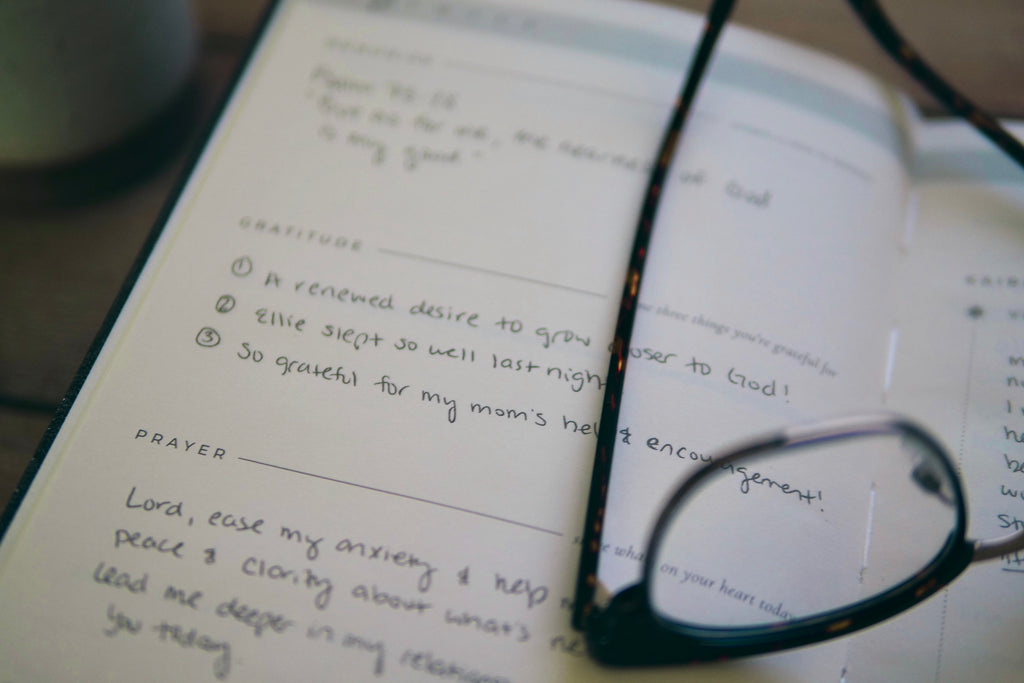 Psalm 73:28
"But as for me, the nearness of God
is my good."
GRATITUDE
three things you're grateful for
① A renewed desire to grow oser to God!
② Ellie slept so well last nigh
③ So grateful for my mom's hel & encouragement!
PRAYER
what on your heart today
Lord, ease my anxiety & help
peace & clarity about what's ne
Lead me deeper in my relation
You today